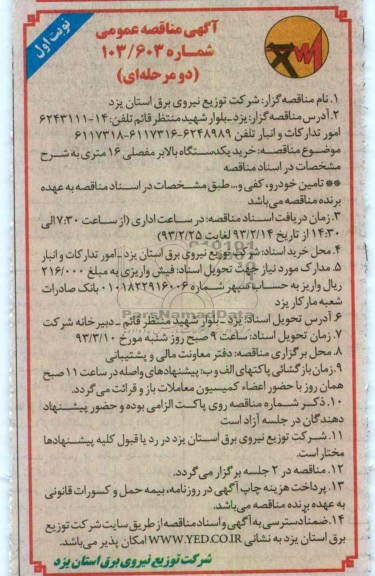 نوبت اول
آگهی مناقصه عمومی
شماره ۱۰۳/۶۰۳
(دو مرحله‌ای)
۱. نام مناقصه گزار: شرکت توزیع نیروی برق استان یزد
۲. آدرس مناقصه گزار: یزد_بلوار شهید منتظر قائم تلفن: ۱۴-۶۲۴۳۱۱۱
امور تدارکات و انبار تلفن ۶۲۴۸۹۸۹-۶۱۱۷۳۱۶-۶۱۱۷۳۱۸
موضوع مناقصه: خرید یکدستگاه بالابر مفصلی ۱۶ متری به شرح
مشخصات در اسناد مناقصه
** تامین خودرو، کفی و... طبق مشخصات در اسناد مناقصه به عهده
برنده مناقصه می‌باشد
۳. زمان دریافت اسناد مناقصه: در ساعات اداری (از ساعت ۷:۳۰ الی
۱۴:۳۰ از تاریخ ۹۳/۲/۱۴ لغایت ۹۳/۲/۲۵)
۴. محل خرید اسناد: شرکت توزیع نیروی برق استان یزد _ امور تدارکات و انبار
۵. مدارک مورد نیاز جهت تحویل اسناد: فیش واریزی به مبلغ ۲۱۶/۰۰۰
ریال واریز به حساب سپهر شماره ۰۱۰۱۸۲۲۹۱۶۰۰۶ بانک صادرات
شعبه مارکار یزد
۶. آدرس تحویل اسناد: یزد _ بلوار شهید منتظر قائم _ دبیرخانه شرکت
۷. زمان تحویل اسناد: ساعت ۹ صبح روز شنبه مورخ ۹۳/۳/۱۰
۸. محل برگزاری مناقصه: دفتر معاونت مالی و پشتیبانی
۹. زمان بازگشائی پاکتهای الف و ب: پیشنهادهای واصله در ساعت ۱۱ صبح
همان روز با حضور اعضاء کمیسیون معاملات باز و قرائت می‌گردد.
۱۰. ذکر شماره مناقصه روی پاکت الزامی بوده و حضور پیشنهاد
دهندگان در جلسه آزاد است
۱۱. شرکت توزیع نیروی برق استان یزد در رد یا قبول کلیه پیشنهادها
مختار است.
۱۲. مناقصه در ۲ جلسه برگزار می‌گردد.
۱۳. پرداخت هزینه چاپ آگهی در روزنامه، بیمه حمل و کسورات قانونی
به عهده برنده مناقصه می‌باشد.
۱۴. ضمنا دسترسی به آگهی و اسناد مناقصه از طریق سایت شرکت توزیع
برق استان یزد به نشانی WWW.YED.CO.IR امکان پذیر می‌باشد.
شرکت توزیع نیروی برق استان یزد